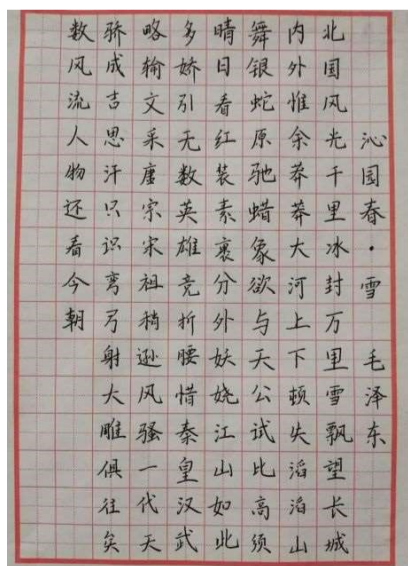 沁园春·雪 毛泽东
北国风光千里冰封万里雪飘望长城
内外惟余莽莽大河上下顿失滔滔山
舞银蛇原驰蜡象欲与天公试比高须
晴日看红装素裹分外妖娆江山如此
多娇引无数英雄竞折腰惜秦皇汉武
略输文采唐宗宋祖稍逊风骚一代天
骄成吉思汗只识弯弓射大雕俱往矣
数风流人物还看今朝